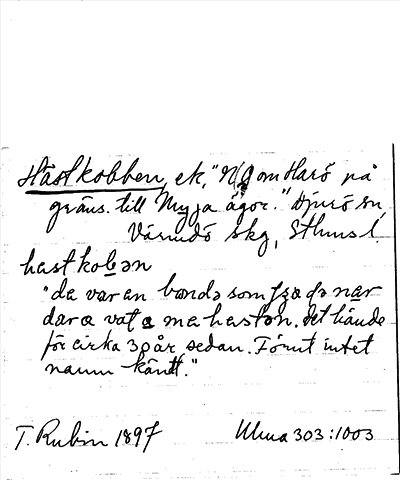 Hästkobben, ek, "NO om Harö på
gräns. till Myja ägor." Djurö sn,
Värmdö skg, Sthms l.
hastkobən
"da var en bondə som
dara vat a me hastən. Det hände
för cirka 30 år sedan. Förut intet
namn känt."
T. Rubin 1897 Ulma 303:1003